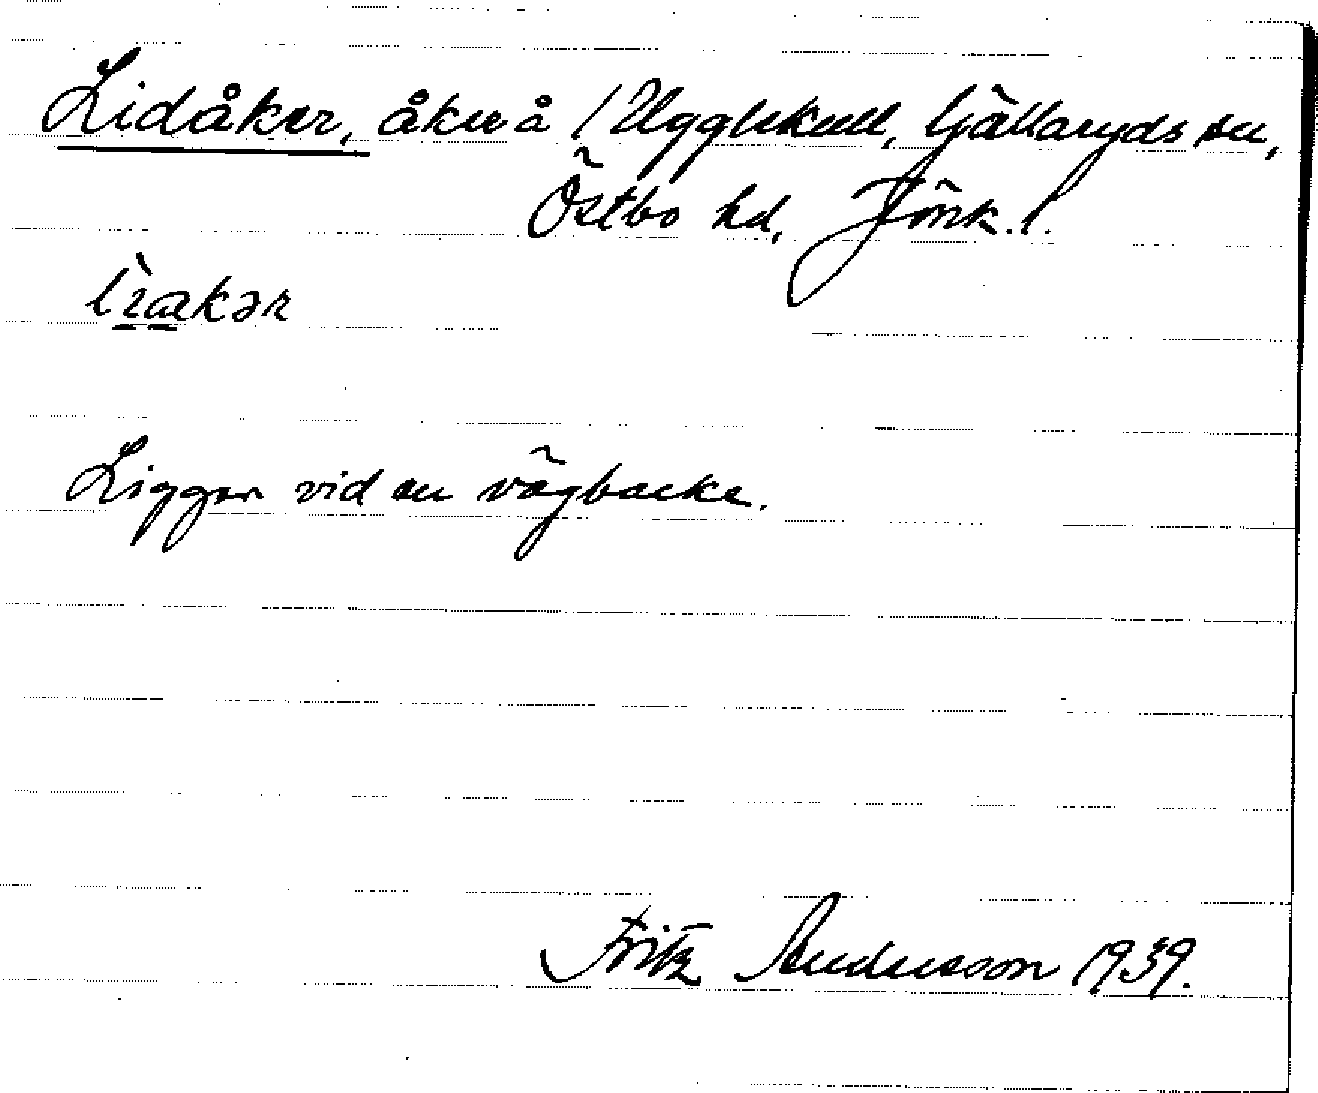 Lidåker, åker å 1 Ugglekull, Gällaryds sn,
Östbo hd, Jönk. l.
Ligger vid en vägbacke.
Fritz Andersson 1939.